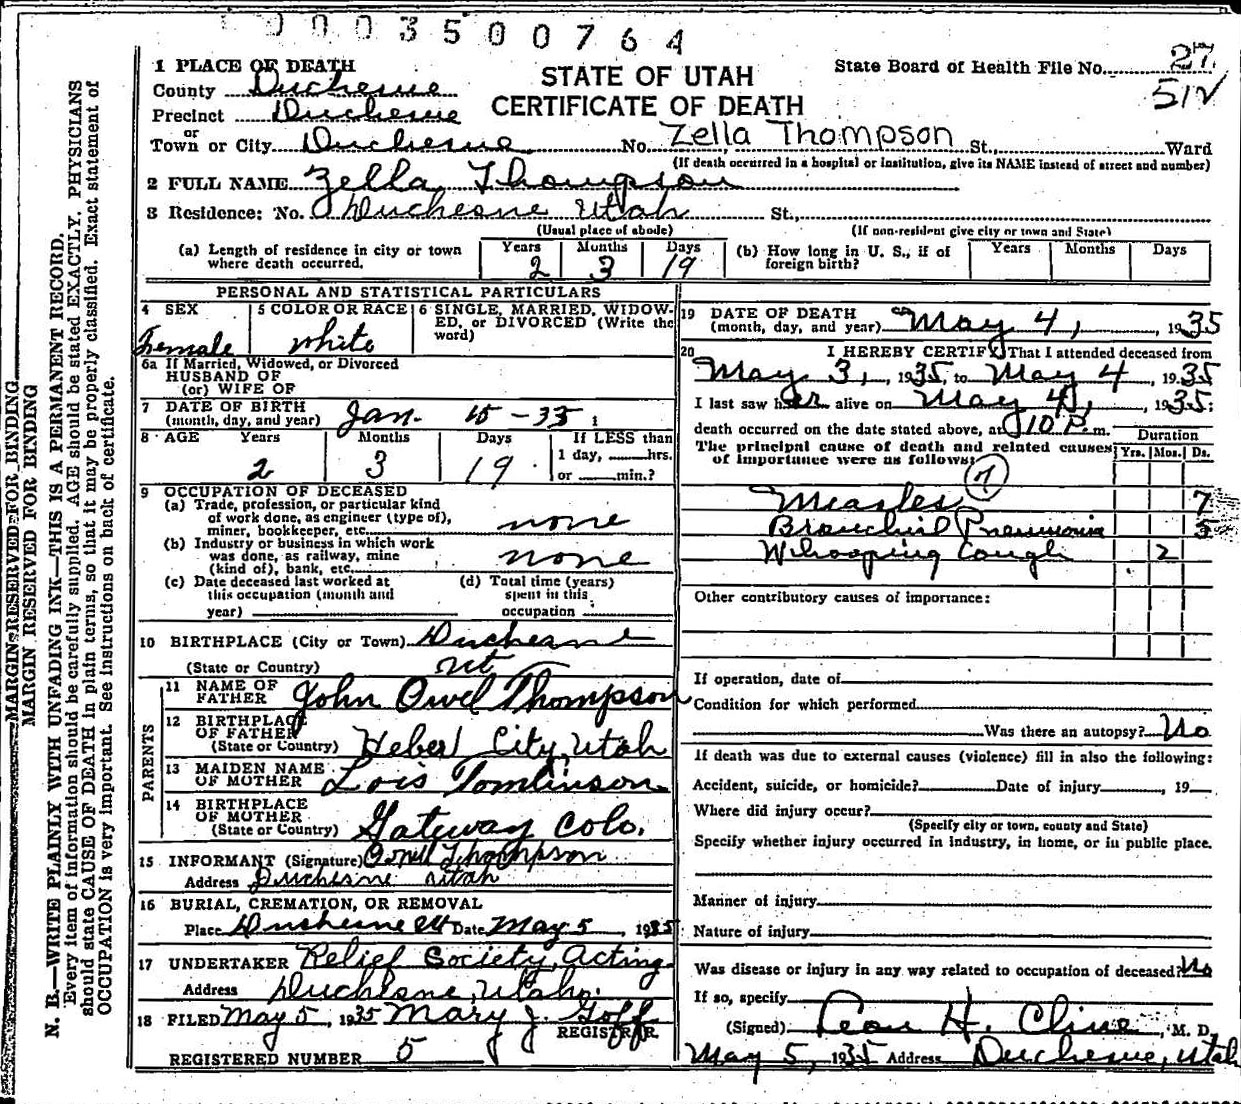 0003500764
1 PLACE OF DEATH
STATE OF UTAH
CERTIFICATE OF DEATH
State Board of Health File No. 27
51V
County Duchesne
Precinct Duchesne
or
Town or City Duchesne No. Zella Thompson St., Ward
(If death occurred in a hospital or institution, give its NAME instead of street and number)
2 FULL NAME Zella Thompson
3 Residence: No. Duchesne Utah St.,
(Usual place of abode) (If non-resident give city or town and State)
(a) Length of residence in city or town where death occurred. Years 2 Months 3 Days 19
(b) How long in U. S., if of foreign birth? Years Months Days
PERSONAL AND STATISTICAL PARTICULARS
4 SEX Female
5 COLOR OR RACE white
6 SINGLE, MARRIED, WIDOWED, or DIVORCED (Write the word)
6a If Married, Widowed, or Divorced
HUSBAND OF
(or) WIFE OF
7 DATE OF BIRTH
(month, day, and year) Jan. 15 - 33 1
8 AGE Years 2 Months 3 Days 19 If LESS than
1 day, hrs.
or min.?
9 OCCUPATION OF DECEASED
(a) Trade, profession, or particular kind
of work done, as engineer (type of),
miner, bookkeeper, etc. none
(b) Industry or business in which work
was done, as railway, mine
(kind of), bank, etc. none
(c) Date deceased last worked at
this occupation (month and
year)
(d) Total time (years)
spent in this
occupation
10 BIRTHPLACE (City or Town) Duchesne
(State or Country) Ut
PARENTS
11 NAME OF
FATHER John Owel Thompson
12 BIRTHPLACE
OF FATHER
(State or Country) Heber City, Utah
13 MAIDEN NAME
OF MOTHER Lois Tomlinson
14 BIRTHPLACE
OF MOTHER
(State or Country) Gateway Colo.
15 INFORMANT (Signature) Thompson
Address Duchesne Utah
16 BURIAL, CREMATION, OR REMOVAL
Place Duchesne Ut Date May 5, 1935
17 UNDERTAKER Relief Society, Acting
Address Duchesne, Utah.
18 FILED May 5, 1935 Mary J. Goff
REGISTRAR
REGISTERED NUMBER 5
19 DATE OF DEATH
(month, day, and year) May 4, , 1935
20 I HEREBY CERTIFY That I attended deceased from
May 3, , 1935, to May 4 , 1935
I last saw her alive on May 4, , 1935;
death occurred on the date stated above, at 10 P. m.
The principal cause of death and related causes
of importance were as follows:
Duration
Yrs. Mos. Ds.
7
Measles 7
Bronchial Pneumonia 5
Whooping Cough 2
Other contributory causes of importance:
If operation, date of
Condition for which performed
Was there an autopsy? No
If death was due to external causes (violence) fill in also the following:
Accident, suicide, or homicide? Date of injury , 19
Where did injury occur?
(Specify city or town, county and State)
Specify whether injury occurred in industry, in home, or in public place.
Manner of injury
Nature of injury
Was disease or injury in any way related to occupation of deceased? No
If so, specify
(Signed) Leon H. Cline, M. D.
May 5, 1935 Address Duchesne, Utah
MARGIN RESERVED FOR BINDING
MARGIN RESERVED FOR BINDING
N. B.—WRITE PLAINLY WITH UNFADING INK—THIS IS A PERMANENT RECORD.
Every item of information should be carefully supplied. AGE should be stated EXACTLY. PHYSICIANS
should state CAUSE OF DEATH in plain terms, so that it may be properly classified. Exact statement of
OCCUPATION is very important. See instructions on back of certificate.